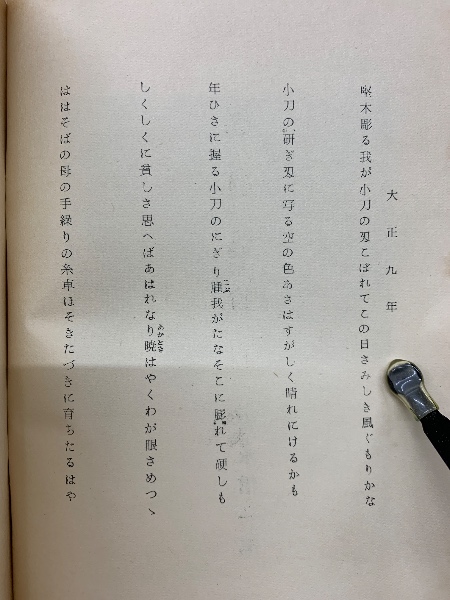 大正九年
堅木彫る我が小刀の刄こぼれてこの日さみしき風ぐもりかな
小刀の研ぎ刄に写る空の色あさはすがしく晴れにけるかも
年ひさに握る小刀のにぎり腫我がたなそこに膨れて硬しも
しくしくに貧しさ思へばあはれなり暁はやくわが眼さめつゝ
ははそばの母の手繰りの糸車ほそきたづきに育ちたるはや